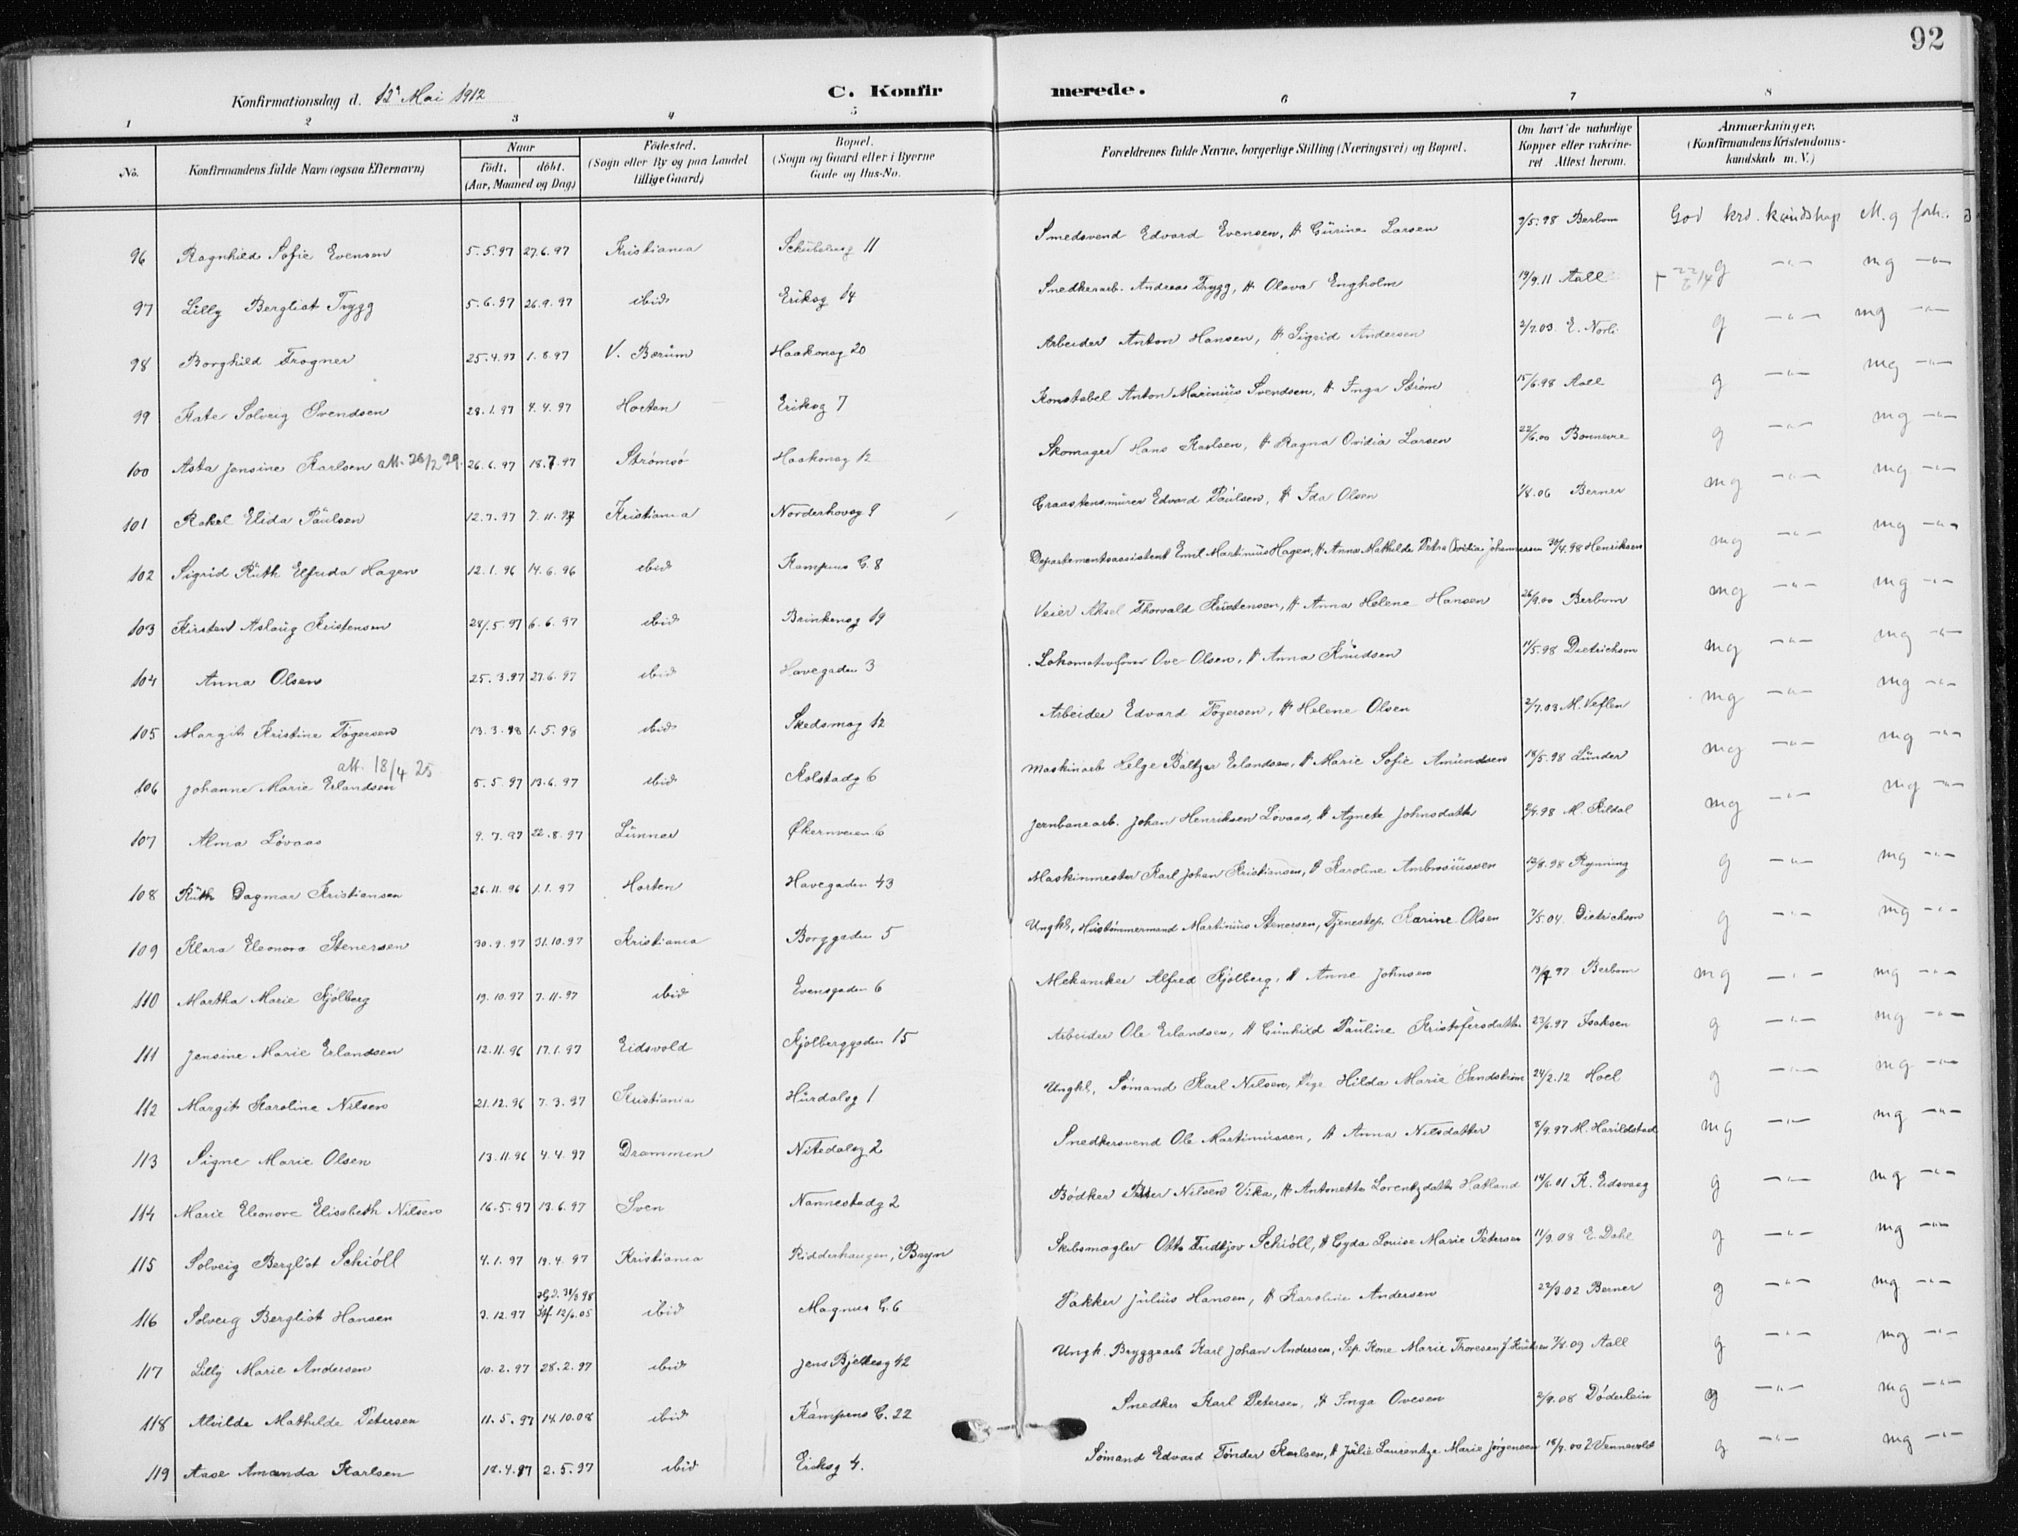 92
Konfirmationsdag d. 12te Mai 1912 C. Konfirmerede.
1 2 3 4 5 6 7 8
No. Konfirmandens fulde Navn (ogsaa Efternavn) Naar Födt. döbt. (Aar, Maaned og Dag) Födested. (Sogn eller By og paa Landet tillige Gaard) Bopæl. (Sogn og Gaard eller i Byerne Gade og Hus-No. Forældrenes fulde Navne, borgerlige Stilling (Næringsvei) og Bopæl. Om havt de naturlige Kopper eller vakcineret Attest herom. Anmærkninger. (Konfirmandens Kristendomskundskab m. V.)
96 Ragnhild Sofie Evensen 5.5.97 27.6.97 Kristiania 11 Smedsvend Edvard Evensen, H Gürine Larsen 9/5.98 Berbom God krd. kundskap M. g forh.
97 Lilly Bergliot Trygg 5.6.97 26.9.97 ibid Eriksg 14 Snedkerarb. Andreas Trygg, H Olava Engholm 19/9.11 Aall g -"- mg -"-
98 Borghild Frogner 25.4.97 1.8.97 V. Bærüm Haakonsg 20 Arbeider Anton Hansen, H Sigrid Andersen 2/7.03 E. Norli g -"- mg -"-
99 Kate Solveig Svendsen 28.1.97 4.4.97 Horten Eriksg 7 Konstabel Anton Marinius Svendsen, H Inga Strøm 15/6.98 Aall g -"- mg -"-
100 Asta Jensine Karlsen att. 26/2 29. 26.6.97 18.7.97 Strømsø Haakonsg 12 Skomager Hans Karlsen, H Ragna Ovidia Larsen 22/6.00 Bonnevie g -"- mg -"-
101 Rakel Elida Paülsen 12.7.97 7.11.97 Kristiania Norderhovsg 9 Graastensmürer Edvard Paülsen, H Ida Olsen 1/8.06 Berner mg -"- mg -"-
102 Sigrid Rüth Elfrida Hagen 12.1.96 14.6.96 ibid Kampens G. 8 Departementsassistent Emil Martinius Hagen, H Anna Mathilde Petra Ovidia Johannessen 30/4.98 Henriksen mg -"- mg -"-
103 Kirsten Aslaüg Kristensen 28/.5.97 6.6.97 ibid Brinkensg 19 Veier Aksel Thorvald Kristensen, H Anna Helene Hansen 26/9.00 Berbom mg -"- mg -"-
104 Anna Olsen 25.3.97 27.6.97 ibid Havegaden 3 Lokomotivfører Ove Olsen, H Anna Knüdsen 11/5.98 Dietrichson mg -"- mg -"-
105 Margit Kristine Togersen 13.3.98 1.5.98 ibid Skedsmog 12 Arbeider Edvard Togersen, H Helene Olsen 2/7.03 M. Veflen mg -"- mg -"-
att. 18/4 25
106 Johanne Marie Erlandsen 5.5.97 13.6.97 ibid Kolstadg 6 Maskinarb Helge Baltzer Erlandsen, H Marie Sofie Amündsen 18/5.98 Lünder mg -"- mg -"-
107 Alma Løvaas 9.7.97 22.8.97 Lünner Økernveien 6 Jernbanearb. Johan Henriksen Løvaas, H Agnete Johnsdatter 2/4.98 M. Kildal mg -"- mg -"-
108 Rüth Dagmar Kristiansen 26.11.96 1.1.97 Horten Havegaden 43 Maskinmester Karl Johan Kristiansen, H Karoline Ambrosiüssen 12/8.98 Rynning g -"- mg -"-
109 Klara Eleonora Stenersen 30.9.97 31.10.97 Kristiania Borggaden 5 Ungkl, Hüstømmermand Martinius Stenersen, Tjenestep. Karine Olsen 7/5.04. Dietrichson g -"- mg -"-
110 Martha Marie Kjölberg 19.10.97 7.11.97 ibid Evensgaden 6 Mekaniker Alfred Kjölberg, H Anne Johnsen 97 Berbom mg -"- mg -"-
111 Jensine Marie Erlandsen 12.11.96 17.1.97 Eidsvold Kjölberggaden 15 Arbeider Ole Erlandsen, H Günhild Paüline Kristofersdatter 23/6.97 Isaksen g -"- mg -"-
112 Margit Karoline Nilsen 21.12.96 7.3.97 Kristiania Hürdalsg 1 Ungkl, Sömand Karl Nilsen, Pige Hilda Marie Sandström 24/2.12 Hoel g -"- mg -"-
113 Signe Marie Olsen 13.11.96 4.4.97 Drammen Nitedalsg 2 Snedkersvend Ole Martinüssen, H Anna Nilsdatter 8/9.97 M. Harildstad mg -"- mg -"-
114 Marie Eleonore Elisabeth Nilsen 16.5.97 13.6.97 Sven Nannestadg 2 Bödker Petter Nilsen Vika, H Antonette Lorentzdatter Hatland 14/6.01 K. Eidsvaag g -"- mg -"-
115 Solveig Bergliot Schiöll 4.1.97 19.4.97 Kristiania Ridderhaugen, Bryn Skibsmægler Otto Fridtjov Schiöll, H Gyda Louise Marie Petersen 11/9.08 E. Dahl g -"- mg -"-
116 Solveig Bergliot Hansen 3.12.97 Hjd. 31/3 98 Stf 12/6.05 ibid Magnus G. 6 Pakker Jülius Hansen, H Karoline Andersen 22/9.02 Berner g -"- mg -"-
117 Lilly Marie Andersen 10.2.97 28.2.97 ibid Jens Bjelkesg 42 Ungk. Bryggearb Karl Johan Andersen, Sep. Kone Marie Thoresen f. Knüdsen 3/8.09 Aall g -"- mg -"-
118 Alvilde Mathilde Petersen 11.5.97 14.10.08 ibid Kampens G. 22 Snedker Karl Petersen, H Inga Ovesen 2/9.08 Döderlein g -"- mg -"-
119 Aase Amanda Karlsen 18.4.97 2.5.97 ibid Eriksg 4. Sömand Edvard Tønder Karlsen, H Jülie Laurentze Marie Jørgensen 18/9.00 Vennevold g -"- mg -"-